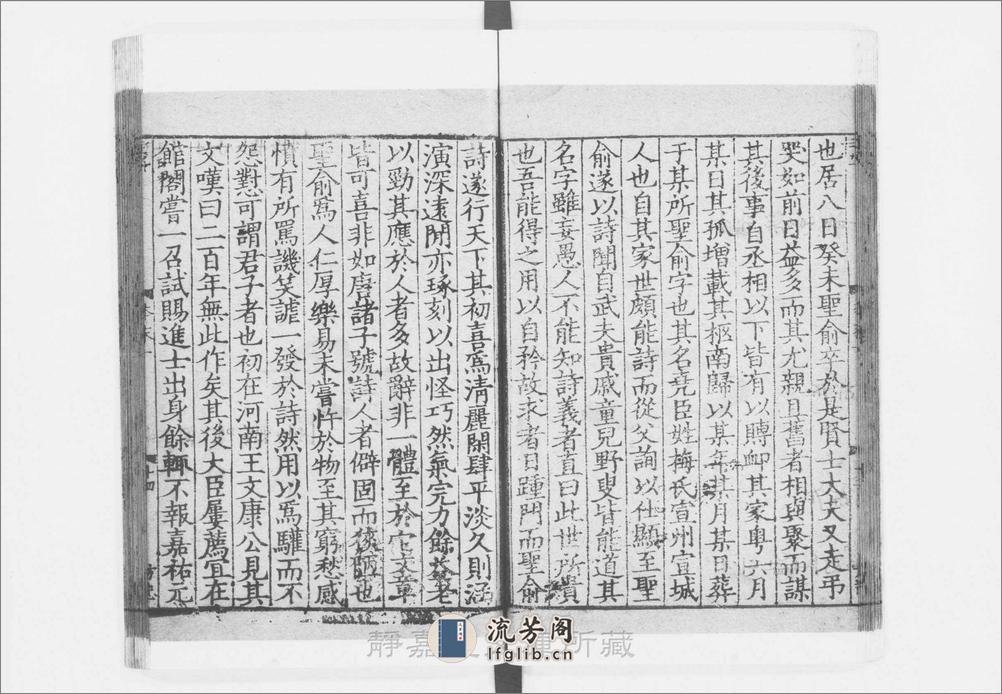 也居八日癸未聖俞卒於是賢士大夫又走弔
哭如前日益多而其尤親且舊者相與聚而謀
其後事自丞相以下皆有以賻卹其家粤六月
某日其孤增載其柩南歸以某年某月某日葬
于某所聖俞字也其名堯臣姓梅氏宣州宣城
人也自其家世頗能詩而從父詢以仕顯至聖
俞遂以詩聞自武夫貴戚童兒野叟皆能道其
名字雖妄愚人不能知詩義者直曰此世所貴
也吾能得之用以自矜故求者日踵門而聖俞
詩遂行天下其初喜爲清麗閑肆平淡久則涵
演深遠閒亦琢刻以出怪巧然氣完力餘益老
以勁其應於人者多故辭非一體至於它文章
皆可喜非如唐諸子號詩人者僻固而狹陋也
聖俞爲人仁厚樂易未嘗忤於物至其窮愁感
憤有所罵譏笑謔一發於詩然用以爲驩而不
怨懟可謂君子者也初在河南王文康公見其
文嘆曰二百年無此作矣其後大臣屢薦宜在
館閣嘗一召試賜進士出身餘輒不報嘉祐元
十四
靜嘉堂文庫所藏
流芳阁
lfglib.cn